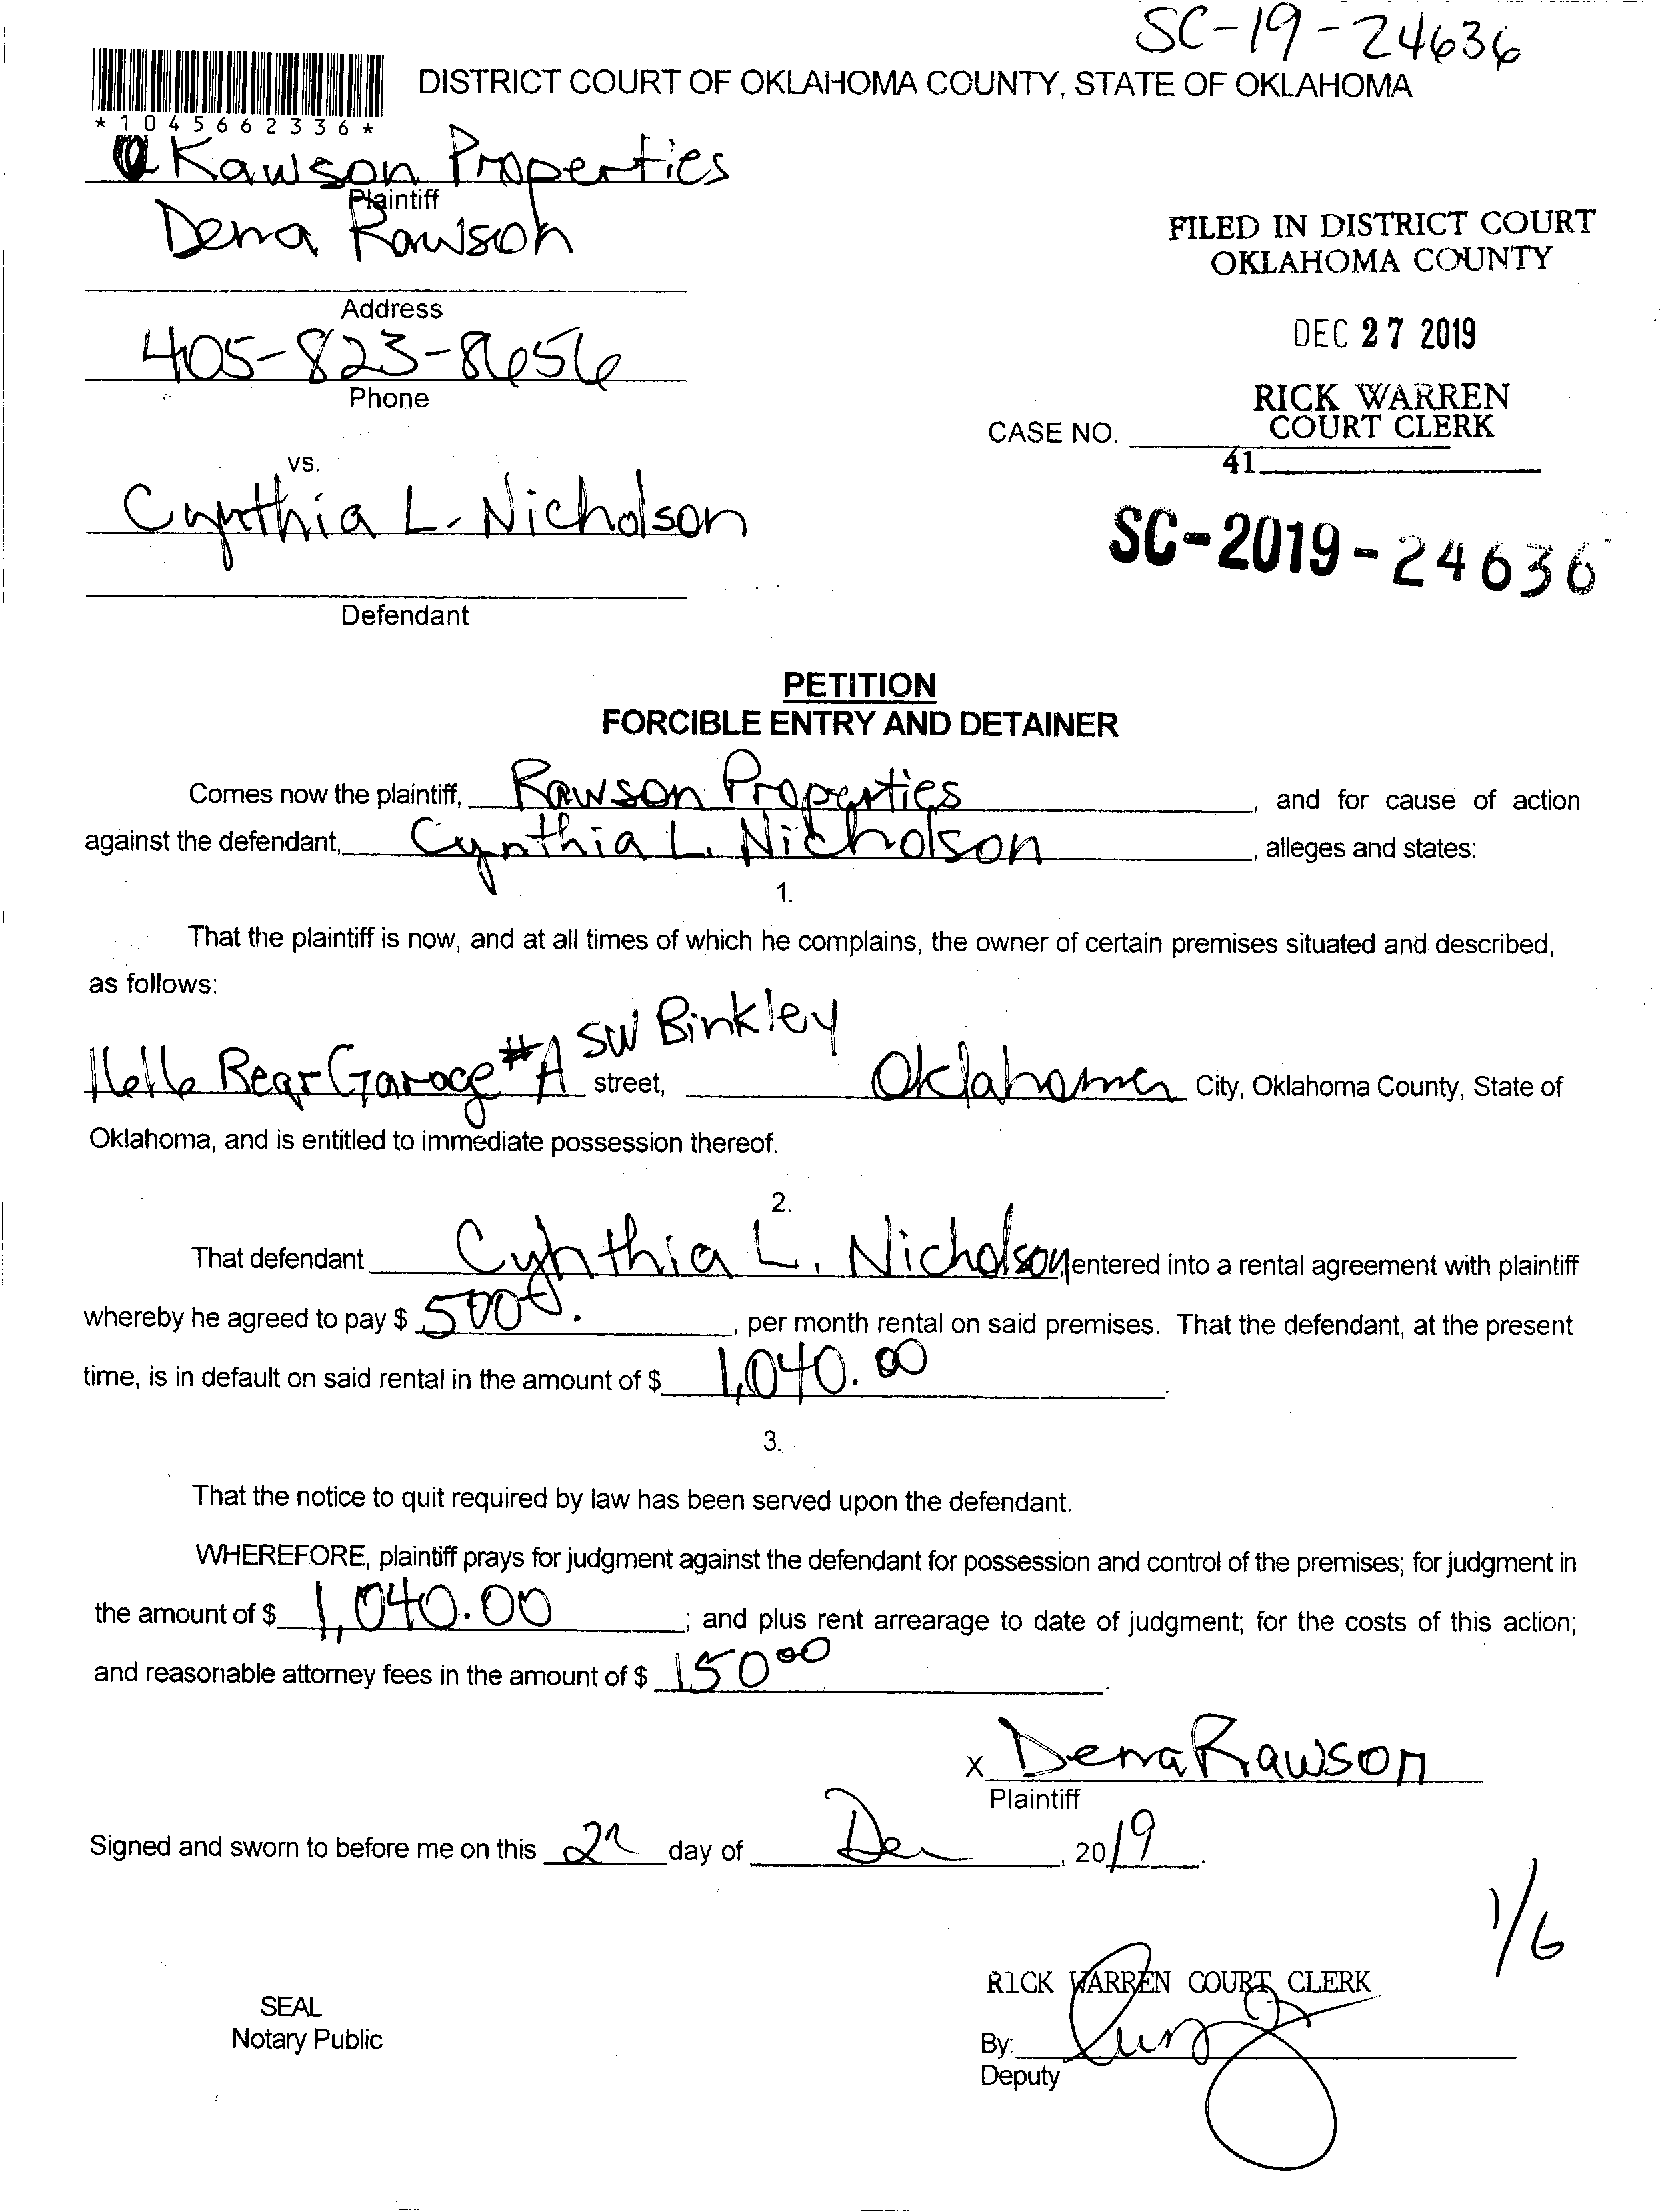 SC-19-24636
DISTRICT COURT OF OKLAHOMA COUNTY, STATE OF OKLAHOMA
*1045662336*
Rawson Properties
Plaintiff
Dena Rawson
FILED IN DISTRICT COURT
OKLAHOMA COUNTY
Address
DEC 27 2019
405-823-8656
Phone
RICK WARREN
COURT CLERK
CASE NO.
41
vs.
Cynthia L. Nicholson
SC-2019-24636
Defendant
PETITION
FORCIBLE ENTRY AND DETAINER
Comes now the plaintiff, Rawson Properties, and for cause of action
against the defendant, Cynthia L. Nicholson, alleges and states:
1.
That the plaintiff is now, and at all times of which he complains, the owner of certain premises situated and described,
as follows:
SW Binkley
Rear Garage #A street, Oklahoma City, Oklahoma County, State of
Oklahoma, and is entitled to immediate possession thereof.
2.
That defendant Cynthia L. Nicholson entered into a rental agreement with plaintiff
whereby he agreed to pay $ 500, per month rental on said premises. That the defendant, at the present
time, is in default on said rental in the amount of $ 1,040.00.
3.
That the notice to quit required by law has been served upon the defendant.
WHEREFORE, plaintiff prays for judgment against the defendant for possession and control of the premises; for judgment in
the amount of $ 1,040.00; and plus rent arrearage to date of judgment; for the costs of this action;
and reasonable attorney fees in the amount of $ 150 00.
x Dena Rawson
Plaintiff
Signed and sworn to before me on this day of , 2019.
1/6
RICK WARREN COURT CLERK
SEAL
Notary Public
By:
Deputy